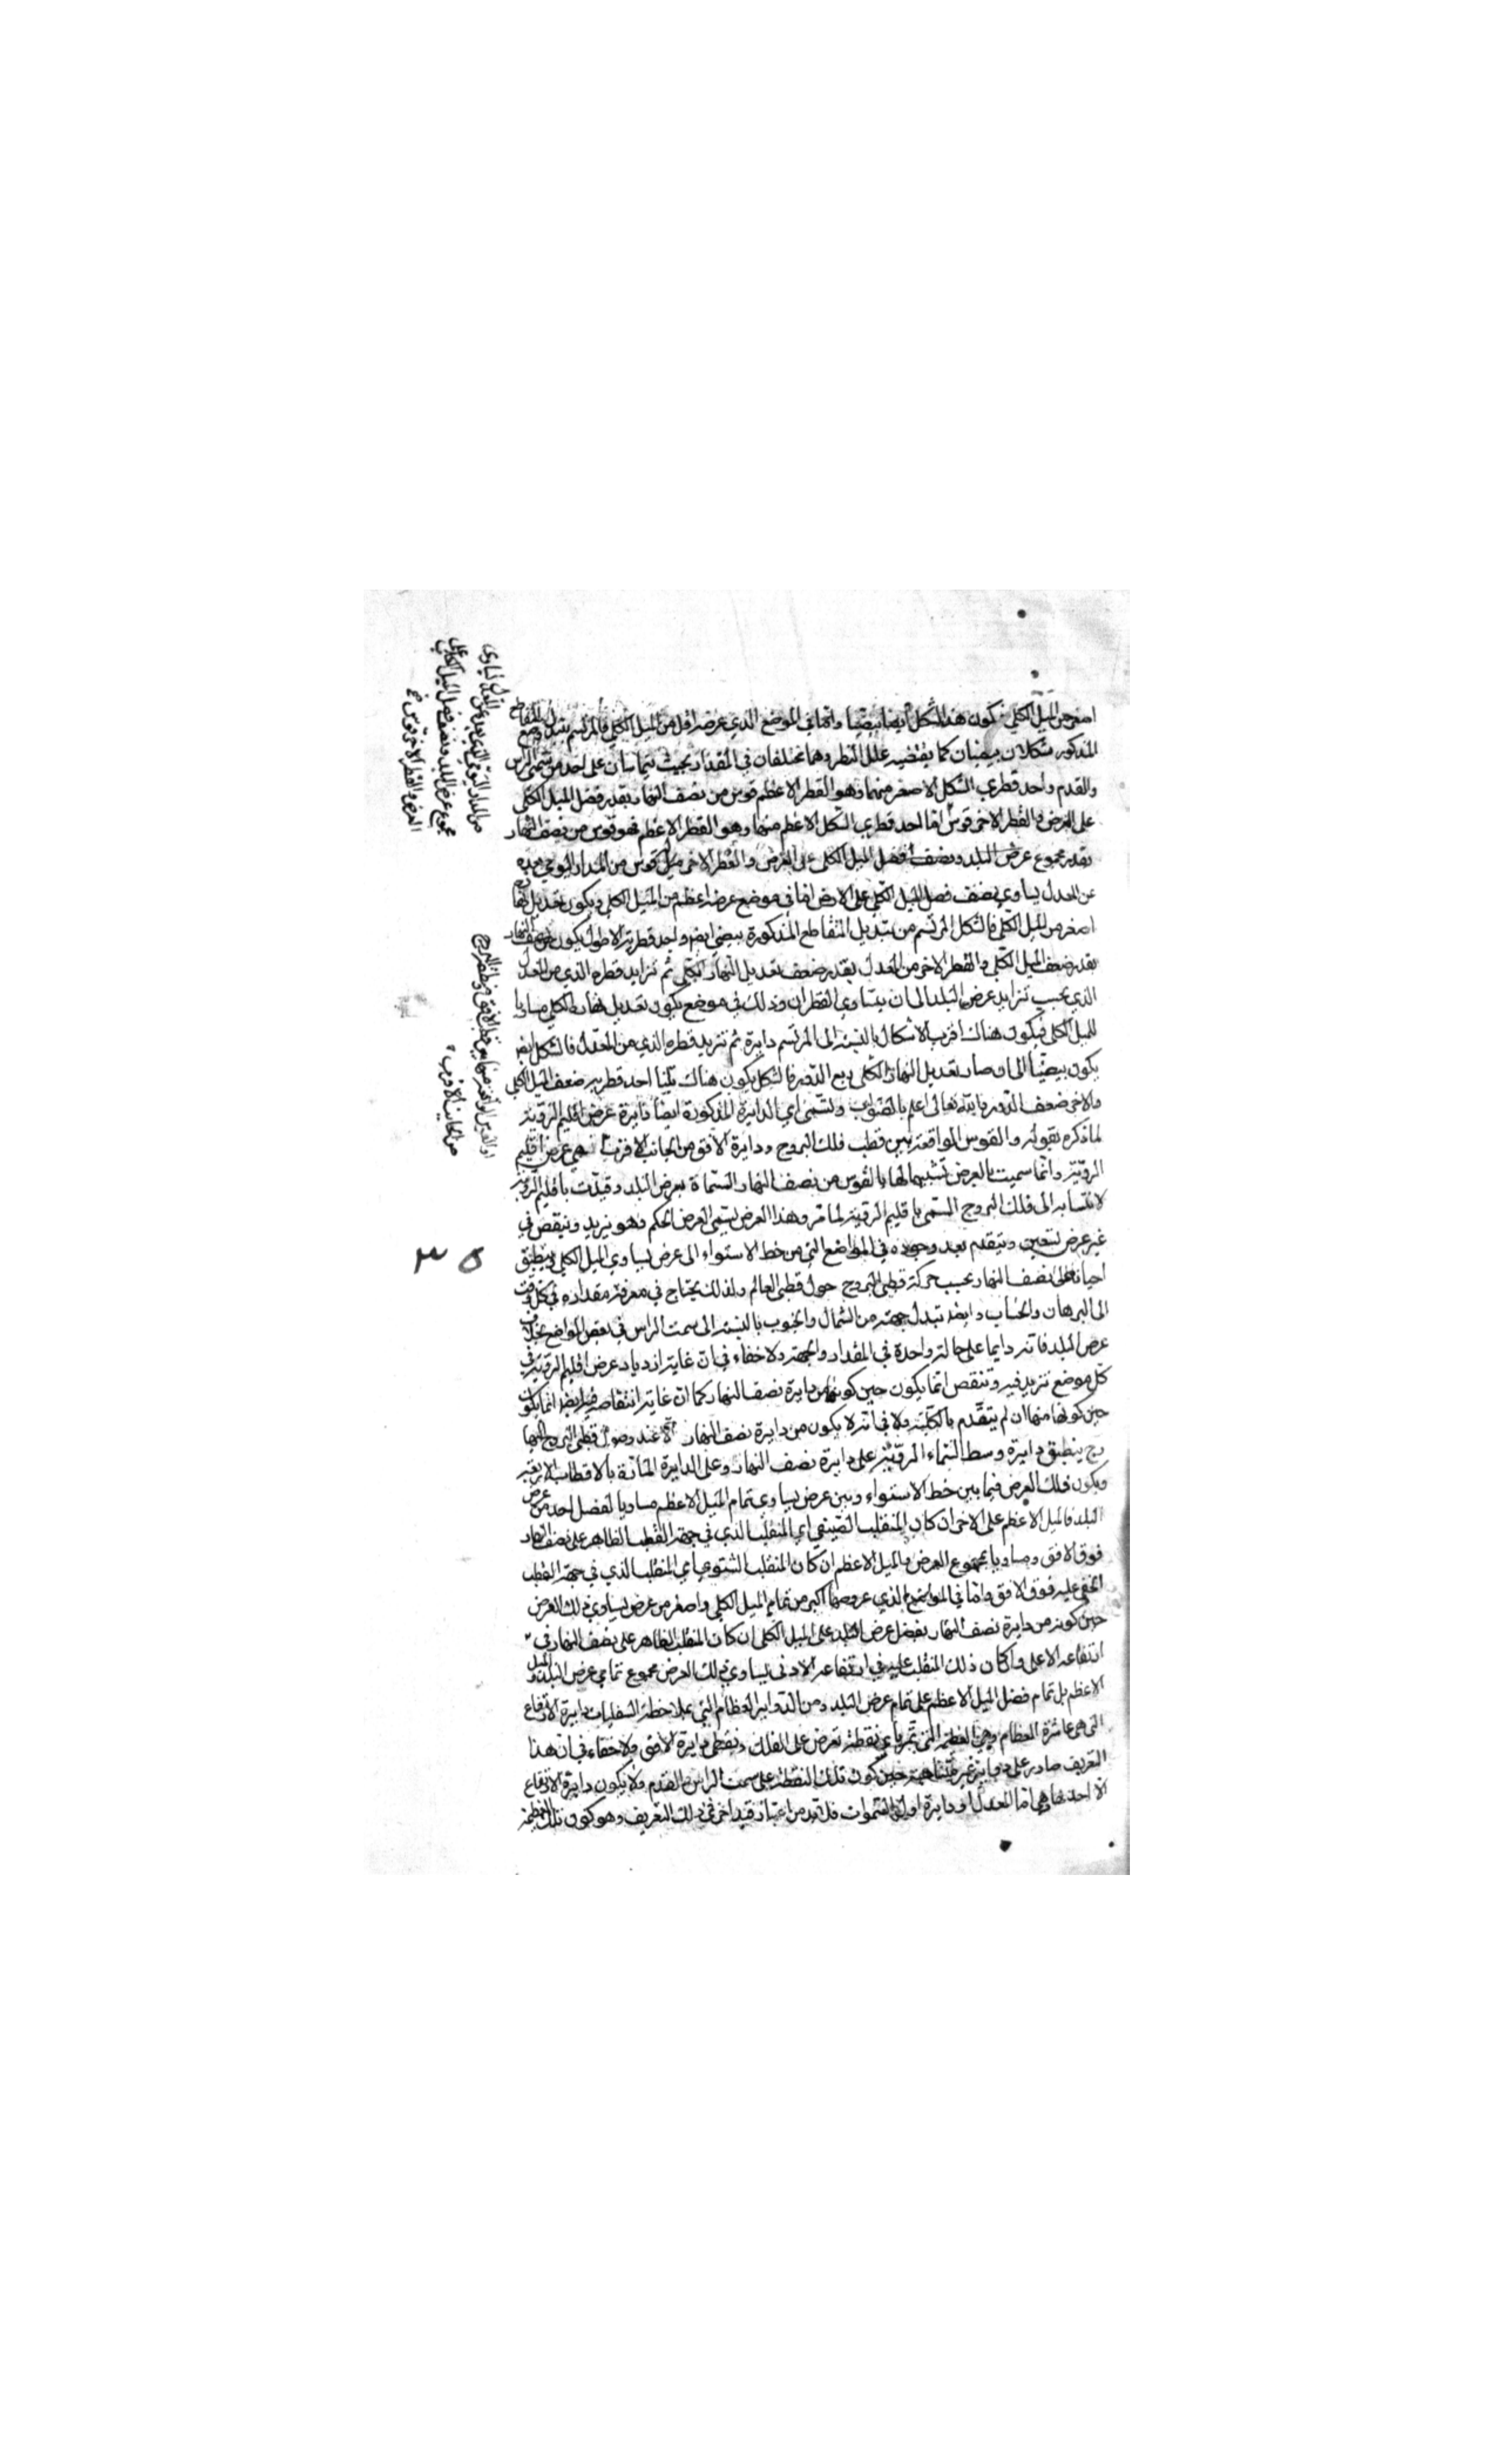 اصغر من الميل الكلي فيكون هذا الشكل ايضا بيضيا واما في الموضع الذي عرضه اقل من الميل الكلي فالمرتسم بتبدل وضع التقاطع
المذكور شكلان بيضيان كما يقتضيه علل النظر وهما مختلفان في المقدار بحيث يتماسان على احد من سمتي الراس
والقدم واحد قطري الشكل الاصغر منهما وهو القطر الاعظم قوس من نصف النهار بقدر فضل الميل الكلي
على العرض والقطر الاخر قوس اما احد قطري الشكل الاعظم منهما وهو القطر الاعظم فهو قوس من نصف النهار
بقدر مجموع عرض البلد ونصف فضل الميل الكلي على العرض والقطر الاخر مثل قوس من المدار اليومي بعده
عن المعدل يساوي نصف فضل الميل الكلي على الارض اما في موضع عرضه اعظم من الميل الكلي ويكون تعديل نهاره
اصغر من الميل الكلي فالشكل المرتسم من تبديل التقاطع المذكورة بيضي ايضا واحد قطريه الاطول يكون من نصف النهار
بقدر ضعف الميل الكلي والقطر الاخر من المعدل بقدر ضعف تعديل النهار الكلي ثم تزايد قطره الذي من المعدل
الذي بحسب تزايد عرض البلد الى ان يتساوي القطران وذلك في موضع يكون تعديل نهاره الكلي مساويا
للميل الكلي فيكون هناك اقرب الاشكال بالنسبة الى المرتسم دايرة ثم تزيد قطره الذي من المعدل فالشكل ايضا
يكون بيضيا الى ان صار تعديل النهار الكلي ربع الدور فالشكل يكون هناك احد قطريه ضعف الميل الكلي
والاخر ضعف الدور والله تعالى اعلم بالصواب وتسمى اي الدايرة المذكورة ايضا دايرة عرض اقليم الروية
لما ذكره بقوله والقوس الواقعة بين قطب فلك البروج ودايرة الافق من الجانب الاقرب هي عرض اقليم
الروية وانما سميت بالعرض تشبيها لها بالقوس من نصف النهار المسماة بعرض البلد وقيدت باقليم الروية
لانتسابه الى فلك البروج المسمى باقليم الروية لما مر وهذا العرض يسمى العرض المحكم وهو يزيد وينقص في
غير عرض تسعين ويتقدم بعد وجوده في المواضع التي من خط الاستواء الى عرض يساوي الميل الكلي وينطبق
احيانا على نصف النهار بحسب حركة قطبي البروج حول قطبي العالم ولذلك يحتاج في معرفة مقداره في كل وقت
الى البرهان والحساب وايضا تبدل جهته من الشمال والجنوب بالنسبة الى سمت الراس في بعض المواضع بخلاف
عرض البلد فانه دايما على حالة واحدة في المقدار والجهة ولا خفاء في ان غاية ازدياد عرض اقليم الروية في
كل موضع تزيد فيه وتنقص انما يكون حين كونها من دايرة نصف النهار كما ان غاية انتقاصه فيه ايضا انما يكون
حين كونها منها ان لم يتقدم بالكلية ولا في انه لا يكون من دايرة نصف النهار الا عند وصول قطبي البروج اليها
وح ينطبق دايرة وسط السماء الروية على دايرة نصف النهار وعلى الدايرة المارة بالاقطاب الاربعة
ويكون ذلك العرض فيما بين خط الاستواء وبين عرض يساوي تمام الميل الاعظم مساويا لفضل احد من عرض
البلد والميل الاعظم على الاخر ان كان المنقلب الصيفي اي المنقلب الذي في جهة القطب الظاهر على نصف النهار
فوق الافق ومساويا بمجموع العرض والميل الاعظم ان كان المنقلب الشتوي اي المنقلب الذي في جهة القطب
الخفي عليه فوق الافق واما في المواضع الذي عروضها اكبر من تمام الميل الكلي واصغر من عرض يساوي ذلك العرض
حين كونه من دايرة نصف النهار بفضل عرض البلد على الميل الكلي ان كان المنقلب الظاهر على نصف النهار في
ارتفاعه الاعلى وان كان ذلك المنقلب عليه في ارتفاعه الادنى يساوي ذلك العرض مجموع تمامي عرض البلد والميل
الاعظم بل تمام فضل الميل الاعظم على تمام عرض البلد ومن الدواير العظام التي بملاحظة السفليات دايرة الارتفاع
التي هي عاشرة العظام وهي العظيمة التي تمر باي نقطة تفرض على الفلك وبقطبي دايرة الافق ولا خفاء في ان هذا
التعريف صادق على دواير غير متناهية حين كون تلك النقطة على سمت الراس والقدم ولا يكون دايرة الارتفاع
الا احدها وهي اما المعدل او دايرة اول السموات فلا بد من اعتبار قيد اخر في ذلك التعريف وهو كون تلك العظيمة
من المدار اليومي الذي بعده عن المعدل يساوي
مجموع عرض البلد ونصف فضل الميل الكلي على
العرض والقطر الاخر قوس
او القوس الواقعة منها بين قطب الافق ومنطقة البروج
من الجانب الاقرب
٣٥